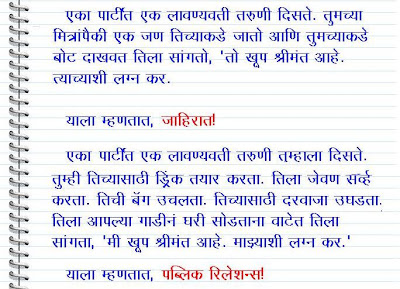 एका पार्टीत एक लावण्यवती तरुणी दिसते. तुमच्या
मित्रांपैकी एक जण तिच्याकडे जातो आणि तुमच्याकडे
बोट दाखवत तिला सांगतो, 'तो खूप श्रीमंत आहे.
त्याच्याशी लग्न कर.
याला म्हणतात, जाहिरात!
एका पार्टीत एक लावण्यवती तरुणी तम्हाला दिसते.
तुम्ही तिच्यासाठी ड्रिंक तयार करता. तिला जेवण सर्व्ह
करता. तिची बॅग उचलता. तिच्यासाठी दरवाजा उघडता.
तिला आपल्या गाडीनं घरी सोडताना वाटेत तिला
सांगता, 'मी खूप श्रीमंत आहे. माझ्याशी लग्न कर.'
याला म्हणतात, पब्लिक रिलेशन्स!